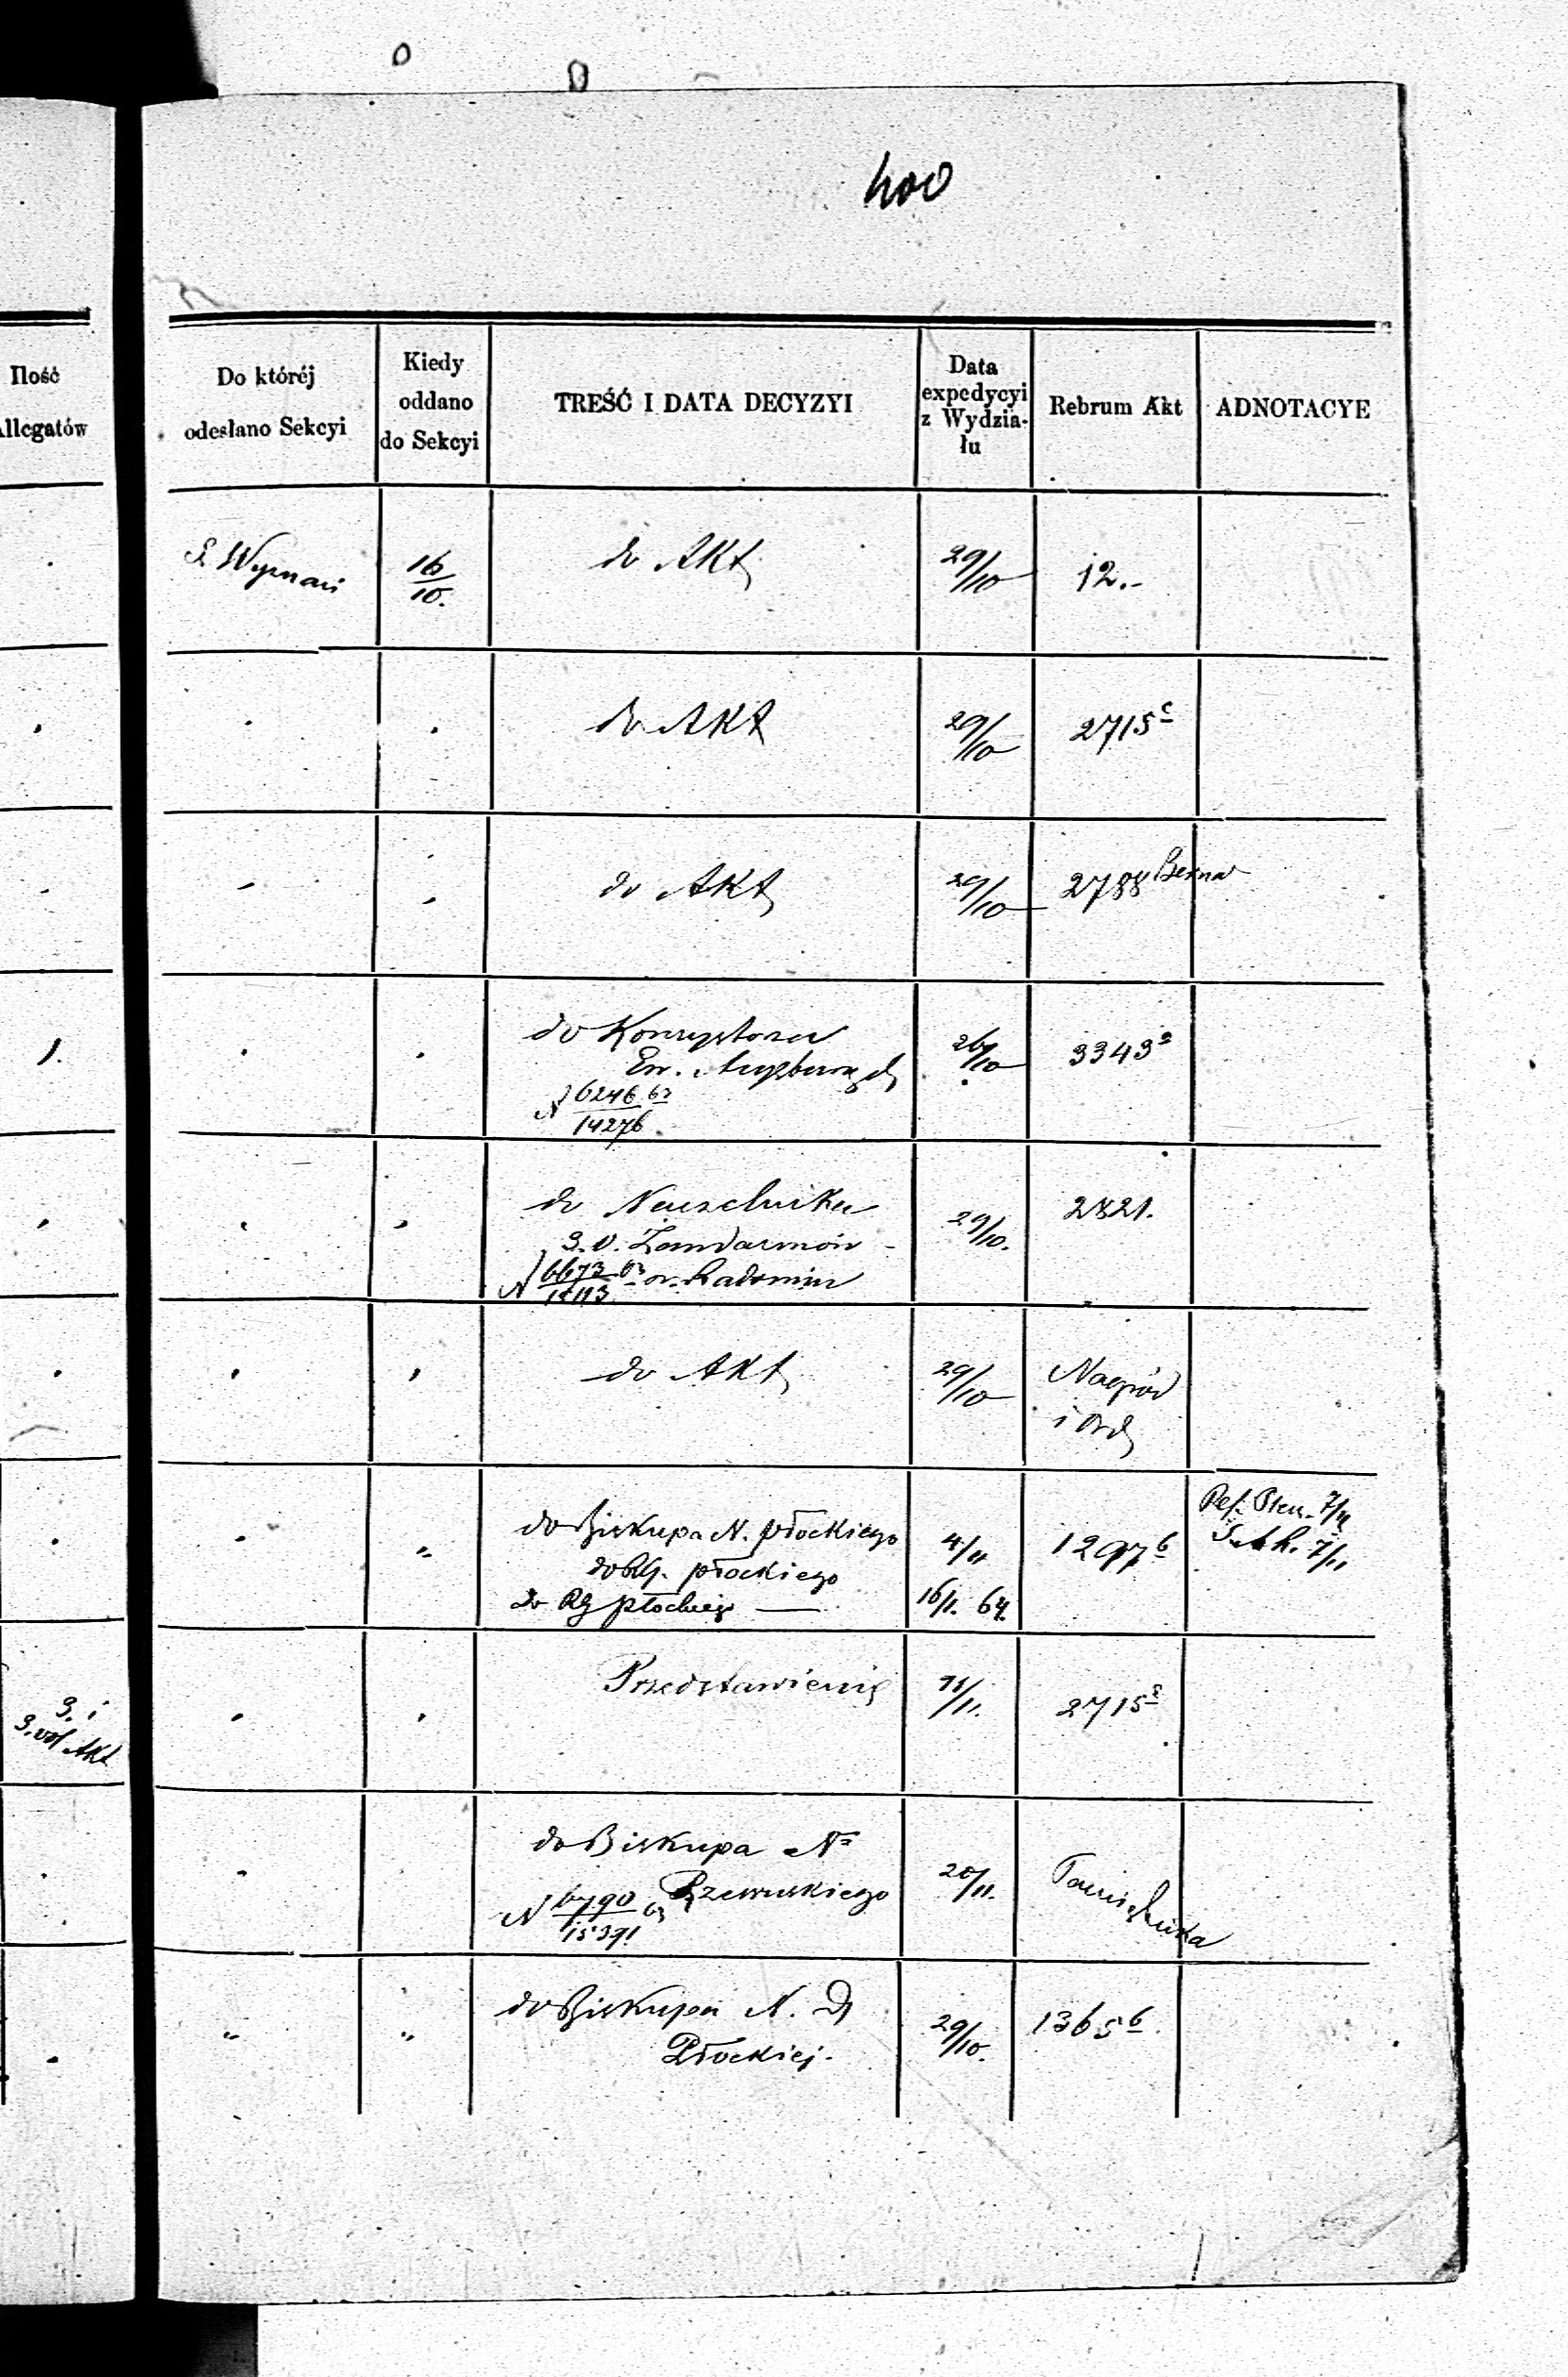 400
Ilość
Allegatów
Do któréj
odesłano Sekcyi
Kiedy
oddano
do Sekcyi
TREŚĆ I DATA DECYZYI
Data
expedycyi
z Wydzia-
łu
Rebrum Akt
ADNOTACYE
S. Wyznań
16/10.
do Akt
29/10
12.-
do Akt
29/10
2715 c
do Akt
29/10
2788
1.
do Konsystorza
Ew. Augsburg
N 6246 63
14276
26/10
3343 a
do Naczelnika
3. O. Żandarmów
N 6673 63 w Radomiu
29/10.
2821.
do Akt
29/10
Nagród
i Ord
do Biskupa N. płockiego
do RG. płockiego
do RG płockiego
4/11
16/1. 64.
1297 b
7/11
7/11
3. i
3. vol Akt
Przedstawienie
11/11.
2715
do Biskupa N
Rzewuskiego
N 6790 63
15391
20/11.
do Biskupa N. D
Płockiej.
29/10.
1365 b